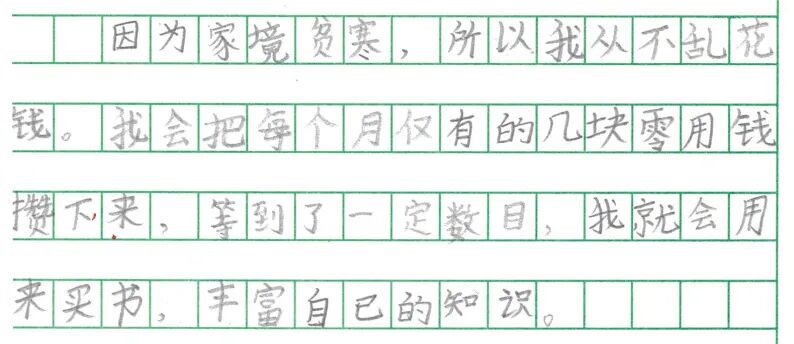 因为家境贫寒，所以我从不乱花
钱。我会把每个月仅有的几块零用钱
攒下来，等到了一定数目，我就会用
来买书，丰富自己的知识。